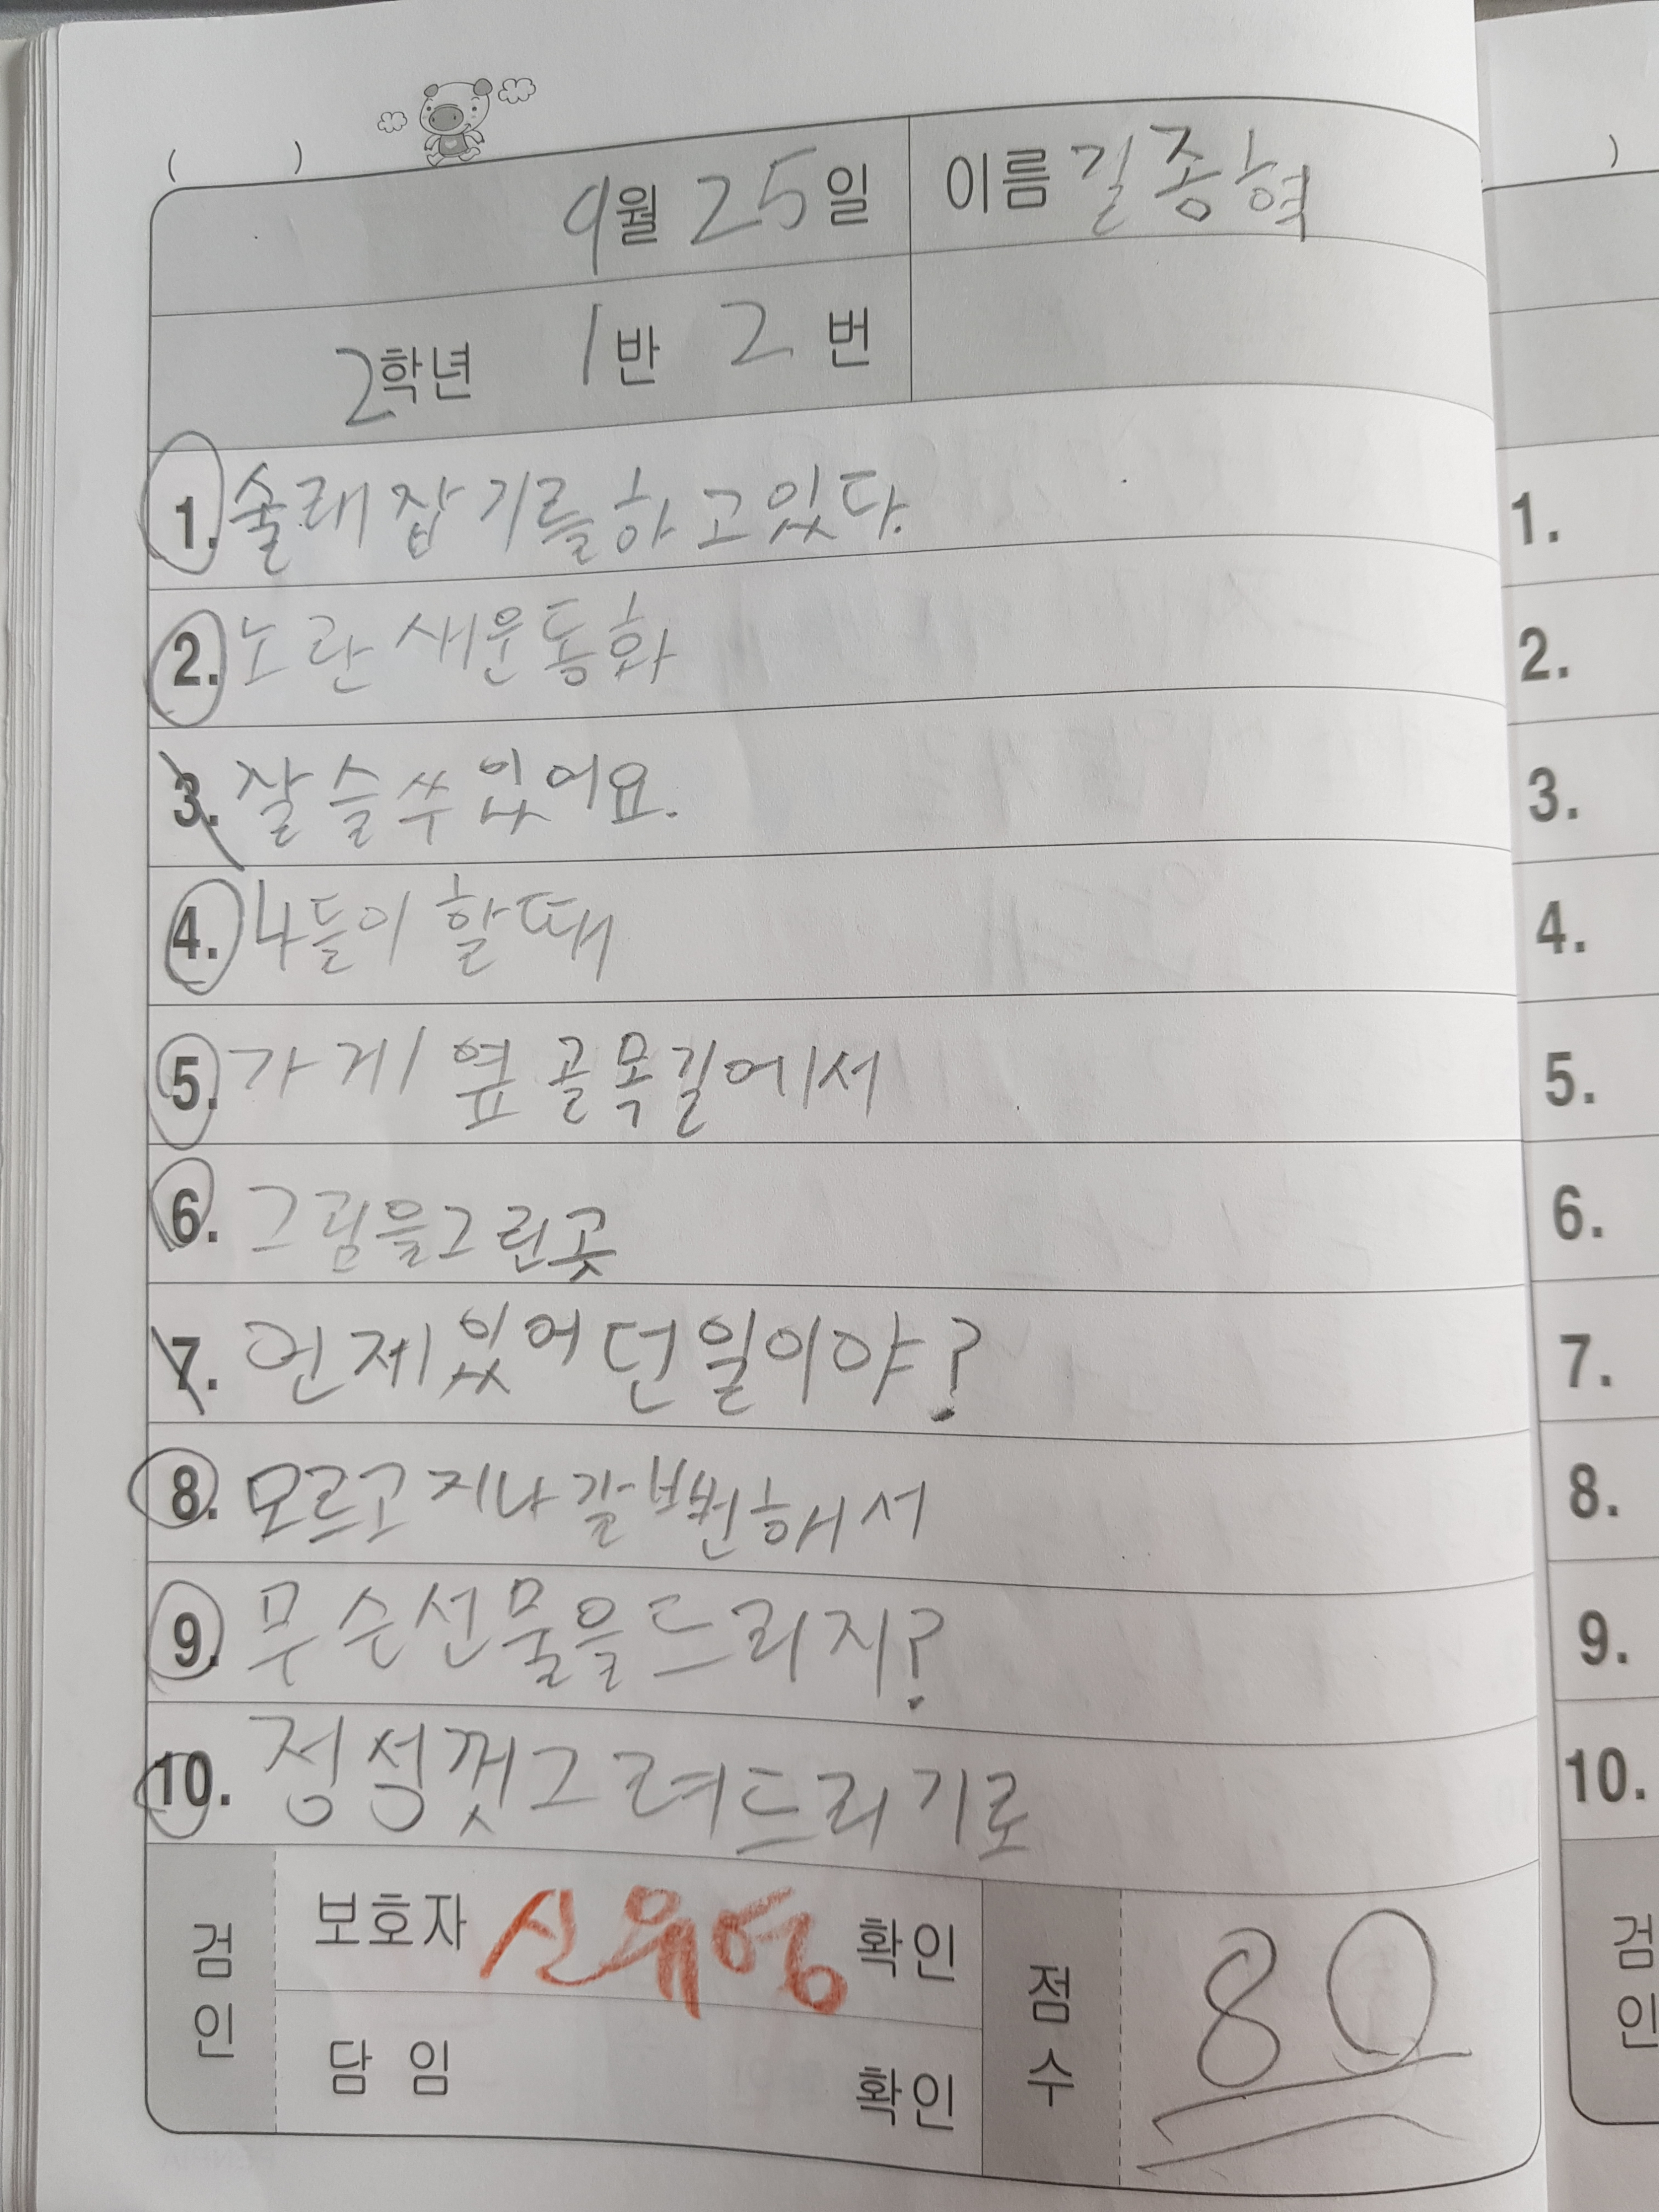 ( )
9월 25일 이름 길종혁
2학년 1반 2번
1. 술래잡기를하고있다.
2. 노란새운동화
3. 잘슬쑤있어요.
4. 나들이할때
5. 가게 옆 골목길에서
6. 그림을그린곳
7. 언제있어던일이야?
8. 모르고지나갈뻔해서
9. 무슨선물을드리지?
10. 정성껏그려드리기로
검인 보호자 신유영 확인 점수 80
담임 확인
)
1.
2.
3.
4.
5.
6.
7.
8.
9.
10.
검인